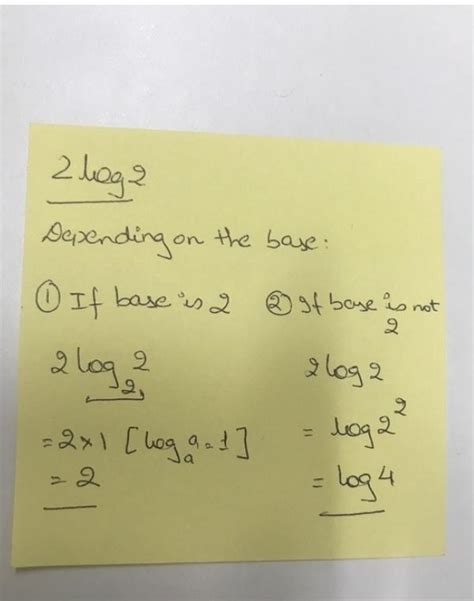 2 log 2
Depending on the base:
① If base is 2
2 log₂ 2
= 2 × 1 [logₐ a = 1]
= 2
② If base is not
2
2 log 2
= log 2²
= log 4